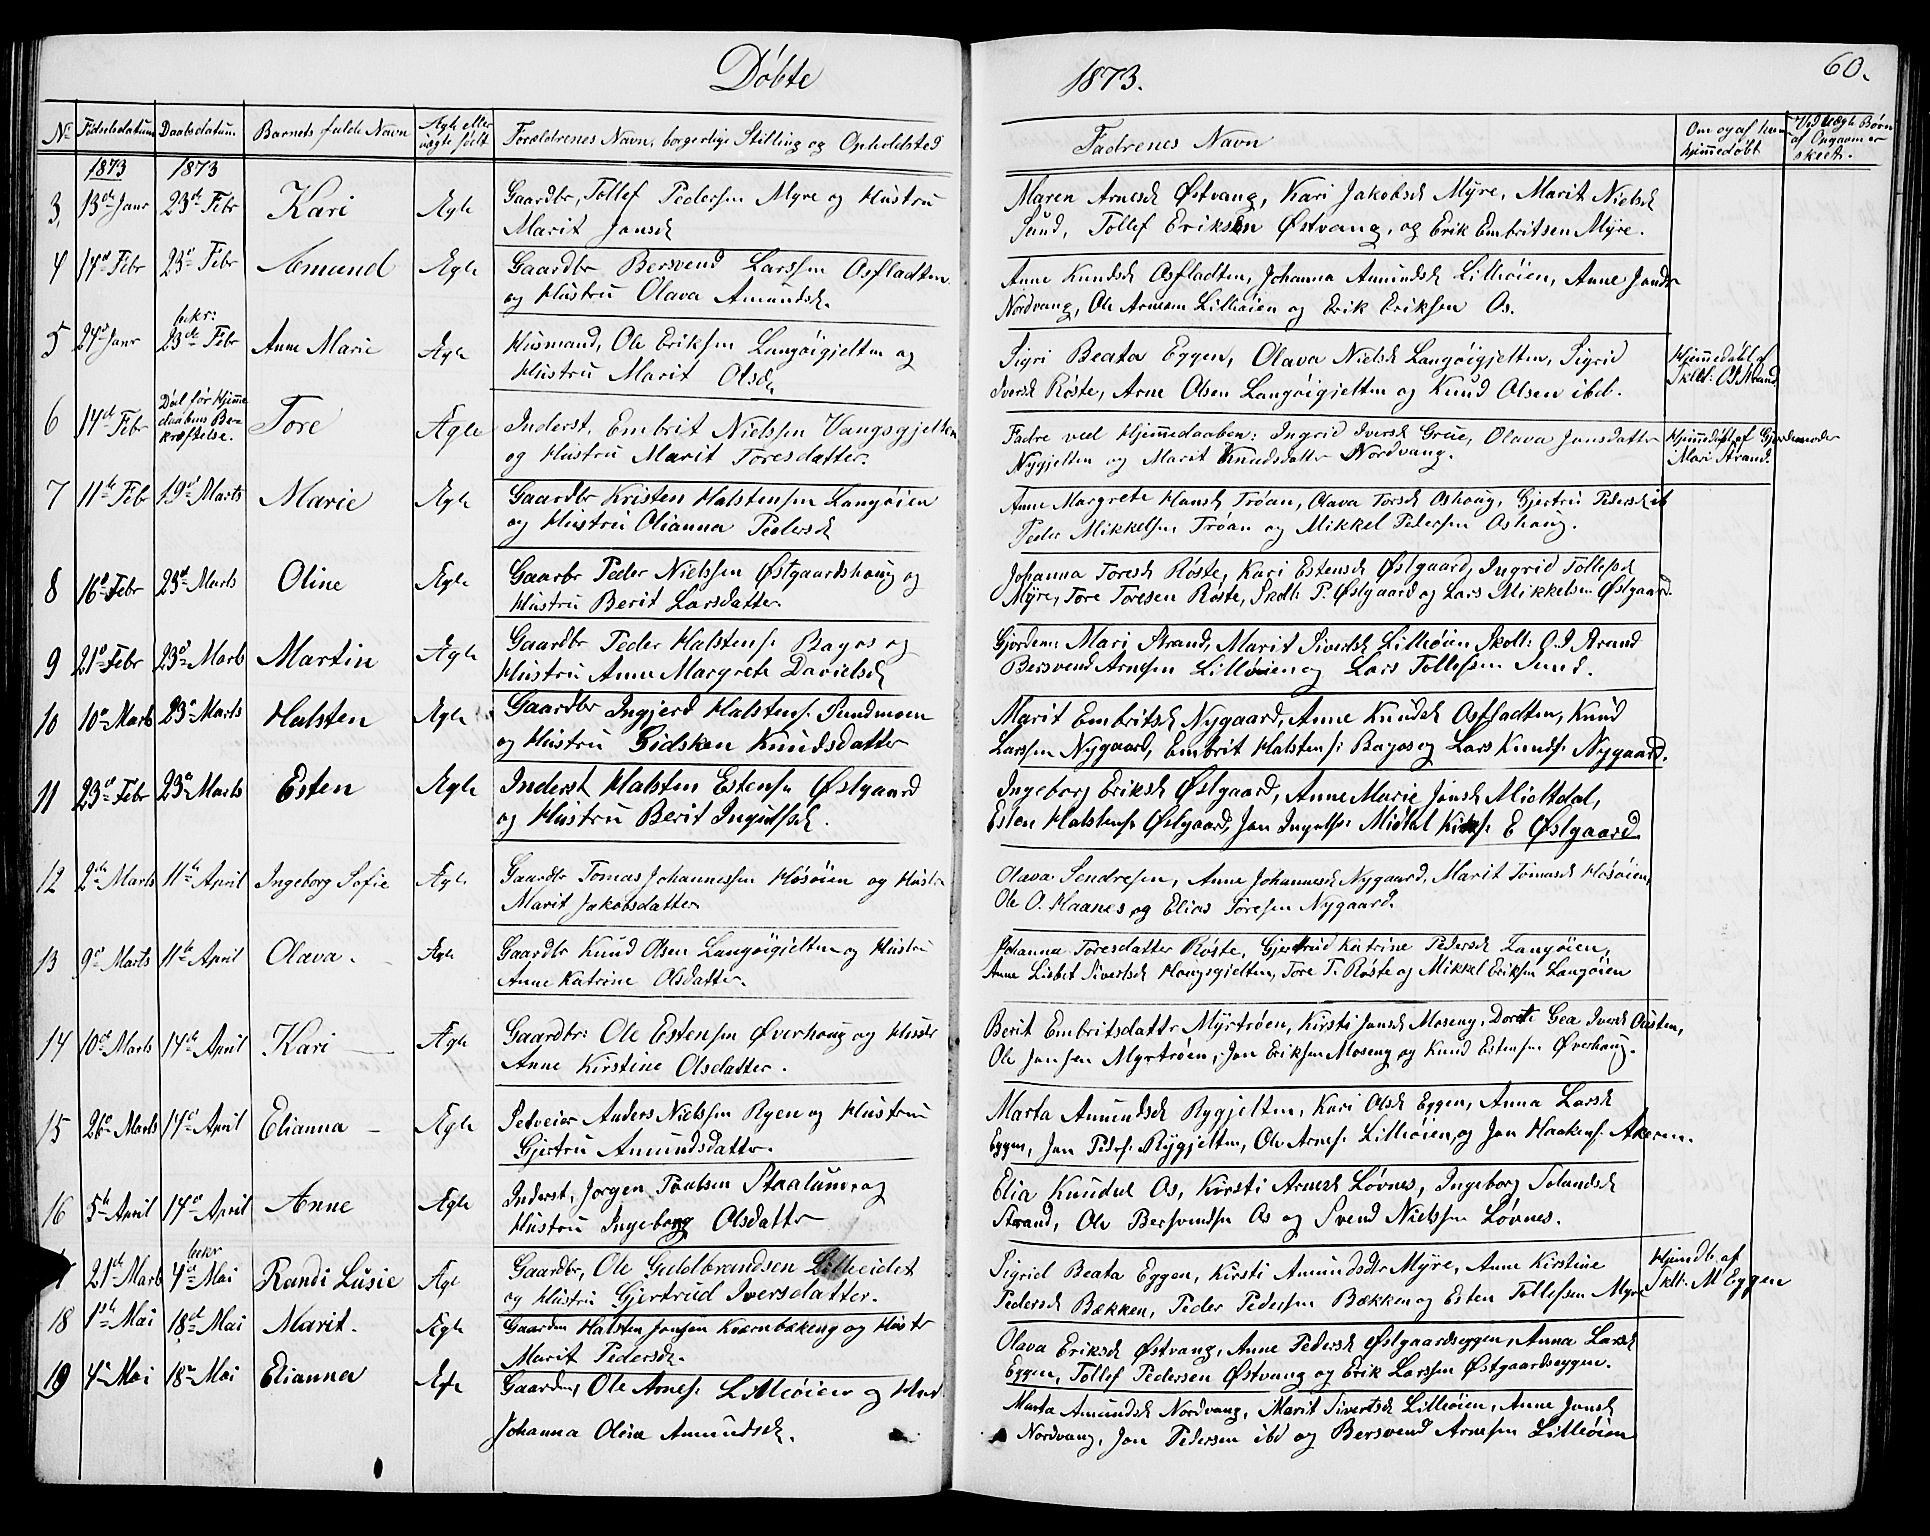 Döbte 1873. 60.
No Fødselsdatum Daabsdatum Barnets fulde Navn Ægte eller uægte født Forældrenes Navn, borgerlige Stilling og Opholdsted Fadrenes Navn Om og af hvem hjemmedøbt Ved uægte Børn
1873 1873
3, 13de Janr 23de Febr Kari Ægte Gaardbr, Tollef Pedersen Myre og Hustru
Marit Jonsd
Maren Arnesd Østvang, Kari Jakobsd Myre, Marit Nielsd
Sund, Tollef Eriksen Østvang, og Erik Embritsen Myre.
4 14de Febr 23de Febr Amund Ægte Gaardbr Bersvend Larssen Osfladten
og Hustru Olava Amundsd.
Anne Knudsd Osfladten, Johanna Amundsd Lilleöien, Anne Jonsdr
Nordvang, Ole Arnesen Lilleöien og Erik Eriksen Os.
5 24de Janr bekr: 23de Febr Anne Marie Ægte Husmand, Ole Eriksen Langöigjelten og
Hustru Marit Olsd.
Sigri Beata Eggen, Olava Nielsd Langöigjelten, Sigrid
Iversd Röste, Arne Olsen Langöigjelten og Knud Olsen ibd.
Hjemmedöbt af
Skoll: O. Strand
6 14de Febr Död för Hjemmedaabens Bekræftelse. Tore Ægte Inderst, Embrit Nielssen Vangsgjelten
og Hustru Marit Toresdatter.
Fadre ved Hjemmedaaben: Ingrid Iversd Grue, Olava Jonsdatter
Nygjelten og Marit Knudsdatter Nordvang.
Hjemmedöbt af Gjordemoder
Mari Strand.
7 11te Febr 19de Marts Marie Ægte Gaardbr Kristen Halstensen Langöien
og Hustru Olianna Pedersd
Anne Margrete Hansd Tröan, Olava Torsd Oshoug, Gjertru Pedersd ib
Peder Mikkelsen Tröan og Mikkel Pedersen Oshoug.
8 16de Febr 23de Marts Oline Ægte Gaarbr Peder Nielssen Östgaardshoug og
Hustru Berit Larsdatter
Johanna Toresd Röste, Kari Estensd Östgaard, Ingrid Tollefsd
Myre, Tore Toresen Röste, Skoll: P. Östgaard og Lars Mikkelsen Östgaard.
9 21de Febr 23de Marts Martin Ægte Gaardbr Peder Halstens. Bagos og
Hustru Anne Margrete Davidsd
Gjordem: Mari Strand, Marit Sivertsd Lilleöien Skoll: O. Strand
Bersvend Arnesen Lilleöien og Lars Tollefsen Sund.
10 10de Marts 23de Marts Halsten Ægte Gaardbr Ingjerd Halstens. Sundmoen
og Hustru Gidsken Knudsdatter
Marit Embritsd Nygaard, Anne Knudsd Osfladten, Knud
Larssen Nygaard, Embrit Halstens: Bagos og Lars Knuds: Nygaard.
11 23de Febr 23de Marts Esten Ægte Inderst Halsten Estens. Östgaard
og Hustru Berit Ingulfsd.
Ingeborg Eriksd Östgaard, Anne Marie Jonsd Miöldal,
Esten Halstens: Östgaard, Jon Ingulfs: E Östgaard.
12 2de Marts 11te April Ingeborg Sofie Ægte Gaardbr Tomas Johannessen Hösöien og Hustr
Marit Jakobsdatter
Olava Sendresen, Anne Johannesd Nygaard, Marit Tomasd Hösöien,
Ole O. Haanes og Elias Toresen Nygaard.
13 9de Marts 11te April Olava. Ægte Gaardbr Knud Olsen Langöigjelten og Hustru
Anne Katrine Olsdatter.
Johanna Toresdatter Röste, Gjertrud Katrine Pedersd Langöien,
Anne Lisbet Sivertsd Hougsgjelten, Tore T. Röste og Mikkel Eriksen Langöien
14 10de Marts 14de April Kari Ægte Gaardbr: Ole Estensen Överhoug og Hustr
Anne Kirstine Olsdatter.
Berit Embritsdattr Myrtröen, Kirsti Jonsd Moseng, Dorte Gea Iversd Austen,
Ole Jonsen Myrtröen, Jon Eriksen Moseng og Knud Estensen Överhoug.
15 26de Marts 14de April Elianna Ægte Anders Nielssen Ryen og Hustru
Gjertru Amundsdatter.
Marta Amundsd Rygjelten, Kari Olsd Eggen, Anna Larsd
Eggen, Jon Peders: Rygjelten, Ole Arnes: Lilleöien, og Jon Haakens. Akeren.
16 5te April 14de April Anne Ægte Inderst, Jorgen Paulsen Staalum, og
Hustru Ingeborg Olsdatter
Elia Knudsd Os, Kirsti Arnesd Lövnes, Ingeborg
Strand, Ole Bersvendsen Os og Svend Nielssen Lövnes.
21de Marts bekr 4de Mai Randi Lusie Ægt Gaardbr, Ole Guldbrandsen Lilleeidet
og Hustru Gjertrud Iversdatter.
Sigrid Beata Eggen, Kirsti Amundsdr Myre, Anne Kirstine
Pedersd Bækken, Peder Pedersen Bækken og Esten Tollefsen Myre
Hjemdb. af
Skll: M Eggen
18 1ste Mai 18de Mai Marit. Ægte Gaardm Halsten Jonsen Kværnbækeng og Hustr
Marit Pedersd.
Olava Eriksd Östvang, Anne Pedersd Östgaardseggen, Anna Larsd
Eggen, Tollef Pedersen Östvang og Erik Larssen Östgaardseggen.
19 4de Mai 18de Mai Elianna Ægte Gaardm, Ole Arnes: Lilleöien og Hust
Johanna Oline Amundsd.
Marta Amundsd Nordvang, Marit Sivertsd Lilleöien, Anne Jonsd
Nordvang, Jon Pedersen ibd og Bersvend Arnesen Lilleöien